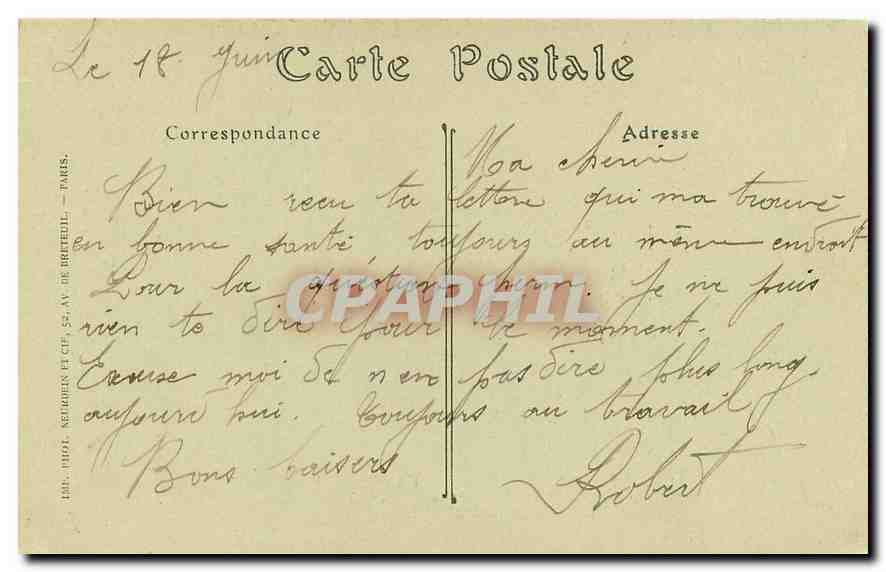 Le 18 Juin
Carte Postale
Correspondance
Adresse
Ma cherie
Bien recu ta lettre qui ma trouvé
en bonne santé toujours au même endroit
Pour la question cherie. Je ne puis
rien te dire pour le moment.
Excuse moi de n en pas dire plus long.
aujourd hui. Toujours au travail
Bons baisers
Robert
IMP. PHOT. NEURDEIN ET CIE, 52, AV. DE BRETEUIL. — PARIS.
CPAPHIL